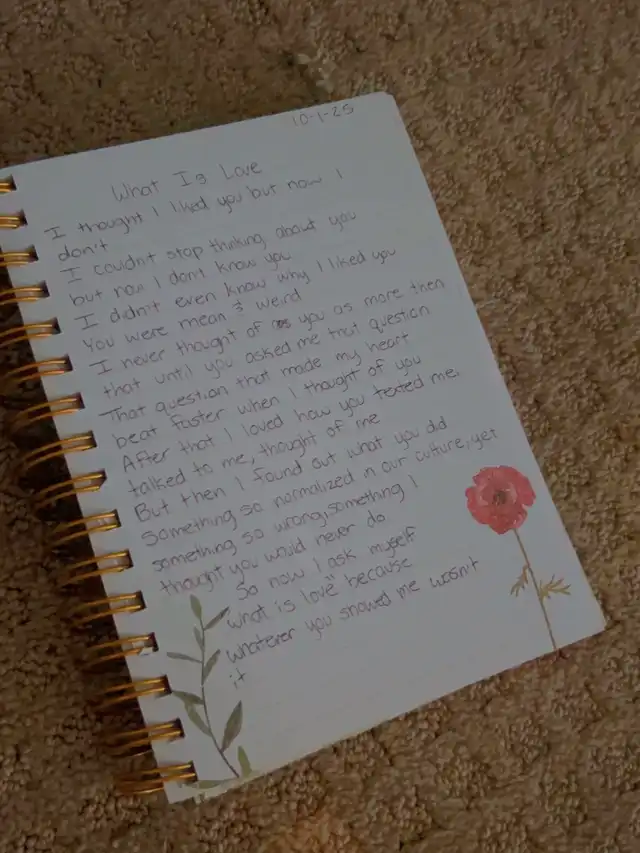 10-1-25
What Is Love
I thought I liked you but now I
don't
I couldn't stop thinking about you
but now I don't know you
I didn't even know why I liked you
You were mean & weird
I never thought of you as more then
that until you asked me that question
That question that made my heart
beat faster when I thought of you
After that I loved how you texted me,
talked to me, thought of me
But then I found out what you did
Something so normalized in our culture, yet
something so wrong, something I
thought you would never do
So now I ask myself
"what is love" because
whatever you showed me wasn't
it